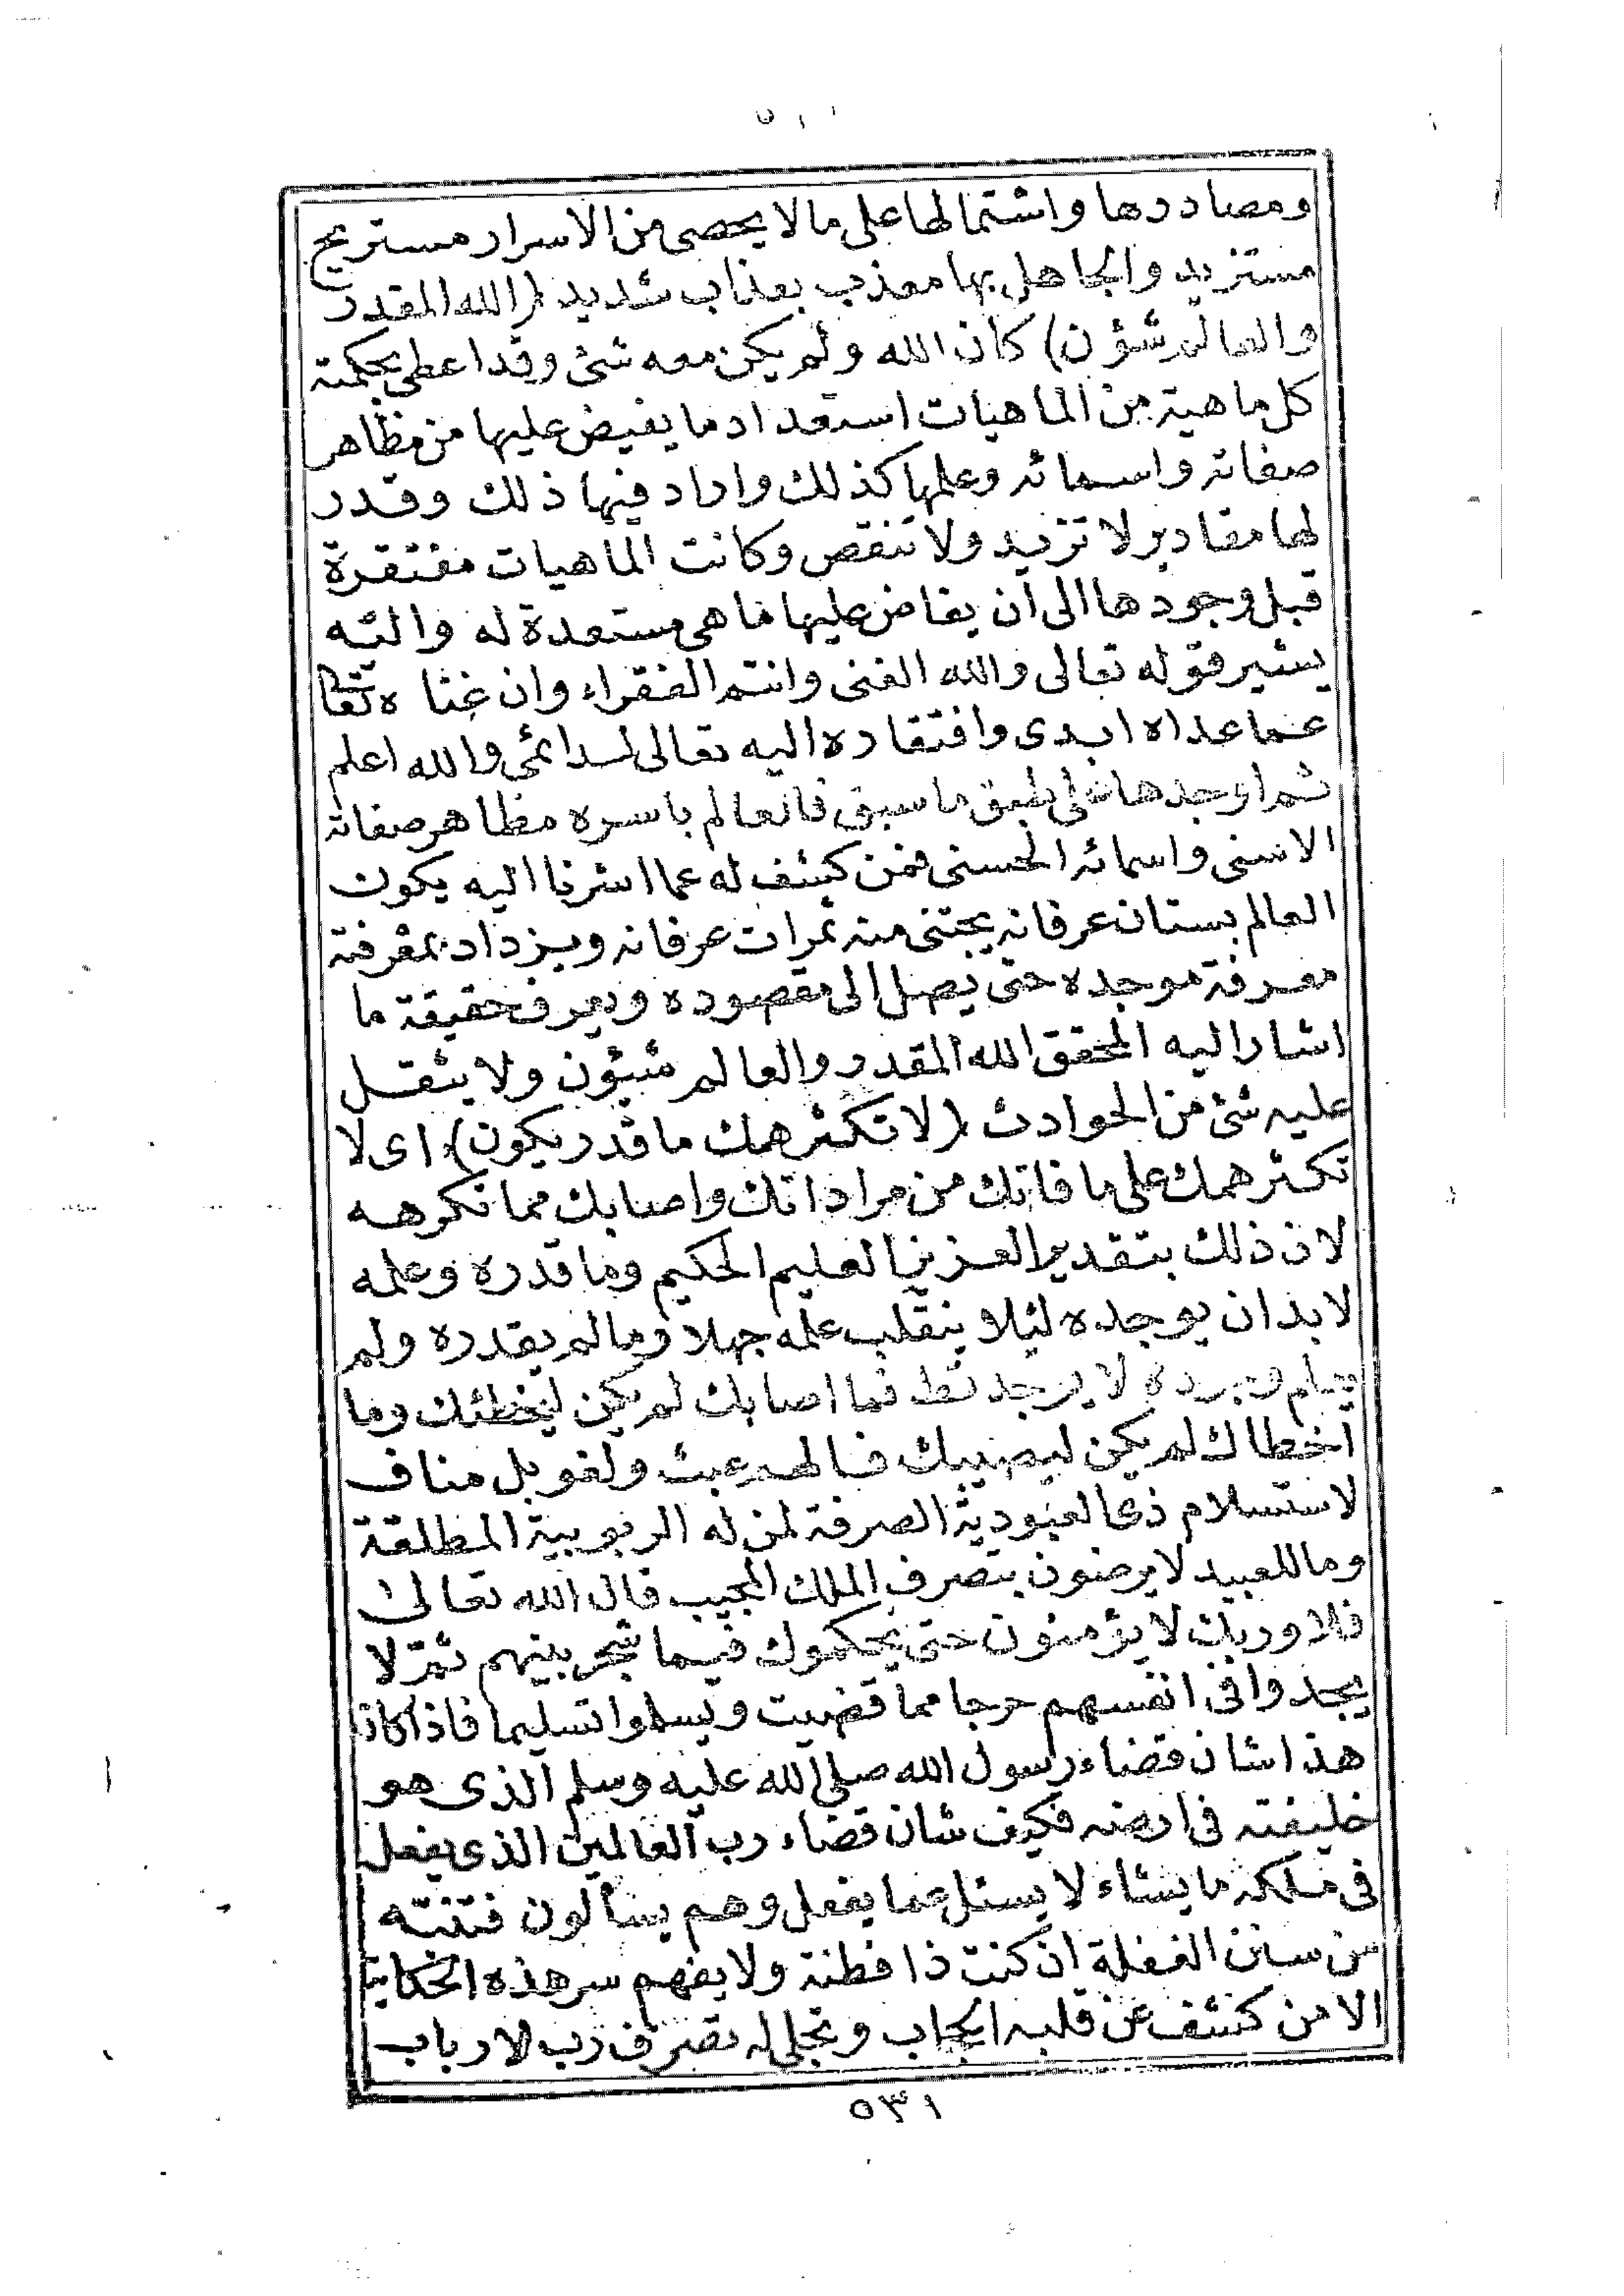 ومصادرها واشتمالها على ما لا يحصى من الاسرار مستريح
مستزيد والجاهل بها معذب بعذاب شديد (الله المقدر
والعالم شؤن) كان الله ولم يكن معه شئ وقد اعطى بحكمته
كل ماهية من الماهيات استعداد ما يفيض عليها من مظاهر
صفاته واسمائه وعلمها كذلك واراد فيها ذلك وقدر
لها مقادير لا تزيد ولا تنقص وكانت الماهيات مفتقرة
قبل وجودها الى ان يفاض عليها ما هى مستعدة له واليه
يشير قوله تعالى والله الغنى وانتم الفقراء وان غناه تعا
عما عداه ابدى وافتقاره اليه تعالى لدائمى والله اعلم
ثم اوجدها على طبق ما سبق فالعالم باسره مظاهر صفاته
الاسنى واسمائه الحسنى فمن كشف له عما اشرنا اليه يكون
العالم بستان عرفانه يجتنى منه ثمرات عرفانه ويزداد بمعرفته
معرفة موجده حتى يصل الى مقصوده ويعرف حقيقة ما
اشار اليه المحقق الله المقدر والعالم شئون ولا يثقل
عليه شئ من الحوادث (لا تكثر همك ما قدر يكون) اى لا
تكثر همك على ما فاتك من مراداتك واصابك مما تكرهه
لان ذلك بتقدير العزيز العليم الحكيم وما قدره وعلمه
لا بد ان يوجده لئلا ينقلب علمه جهلا وما لم يقدره ولم
يعلم ويرده لا يوجد قط فما اصابك لم يكن ليخطئك وما
اخطاك لم يكن ليصيبك فالهم عبث ولغو بل مناف
لاستسلام ذى العبودية الصرفة لمن له الربوبية المطلقة
وما للعبيد لا يرضون بتصرف الملك المجيب قال الله تعالى
فلا وربك لا يؤمنون حتى يحكموك فيما شجر بينهم ثم لا
يجدوا فى انفسهم حرجا مما قضيت ويسلموا تسليما فاذا كان
هذا شان قضاء رسول الله صلى الله عليه وسلم الذى هو
خليفته فى ارضه فكيف شان قضاء رب العالمين الذى يفعل
فى ملكه ما يشاء لا يسئل عما يفعل وهم يسألون فتنته
من سنن الغفلة ان كنت ذا فطنة ولا يفهم سر هذه الحكاية
الا من كشف عن قلبه الحجاب وتجلى له تصرف رب الارباب
٥٣١